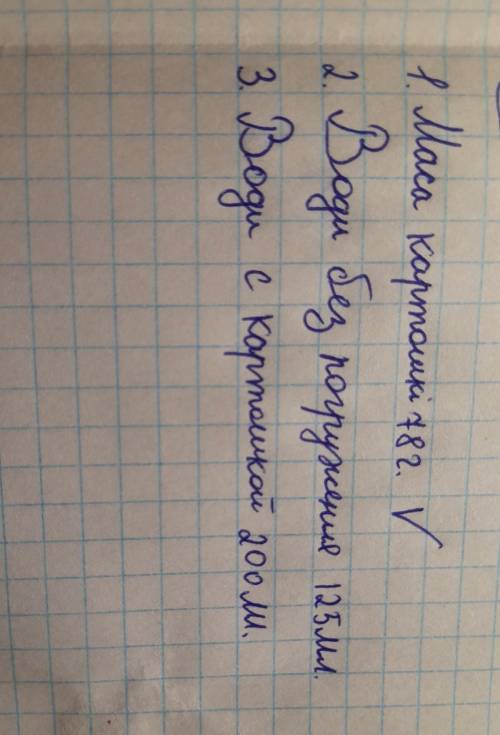 1. Маса картошкі 78г. V
2. Води без погружения 125мл.
3. Води с картошкой 200мл.